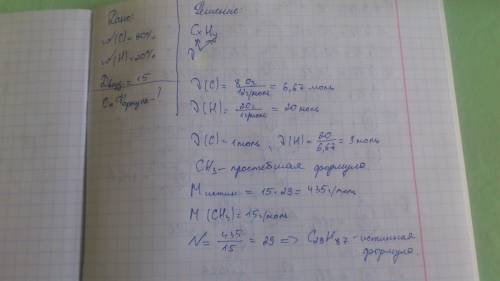 Дано:
w(C)=80%
w(H)=20%
Dвозд=15
Формула-?
Решение:
CxHy
ν(C) = 80г / 12г/моль = 6,67 моль
ν(H) = 20г / 1г/моль = 20 моль
ν(C) = 1 моль, ν(H) = 20 / 6,67 = 3 моль
CH3 - простейшая формула
M истин = 15·29 = 435 г/моль
M(CH3) = 15 г/моль
N = 435 / 15 = 29 => C29H87 - истинная
формула